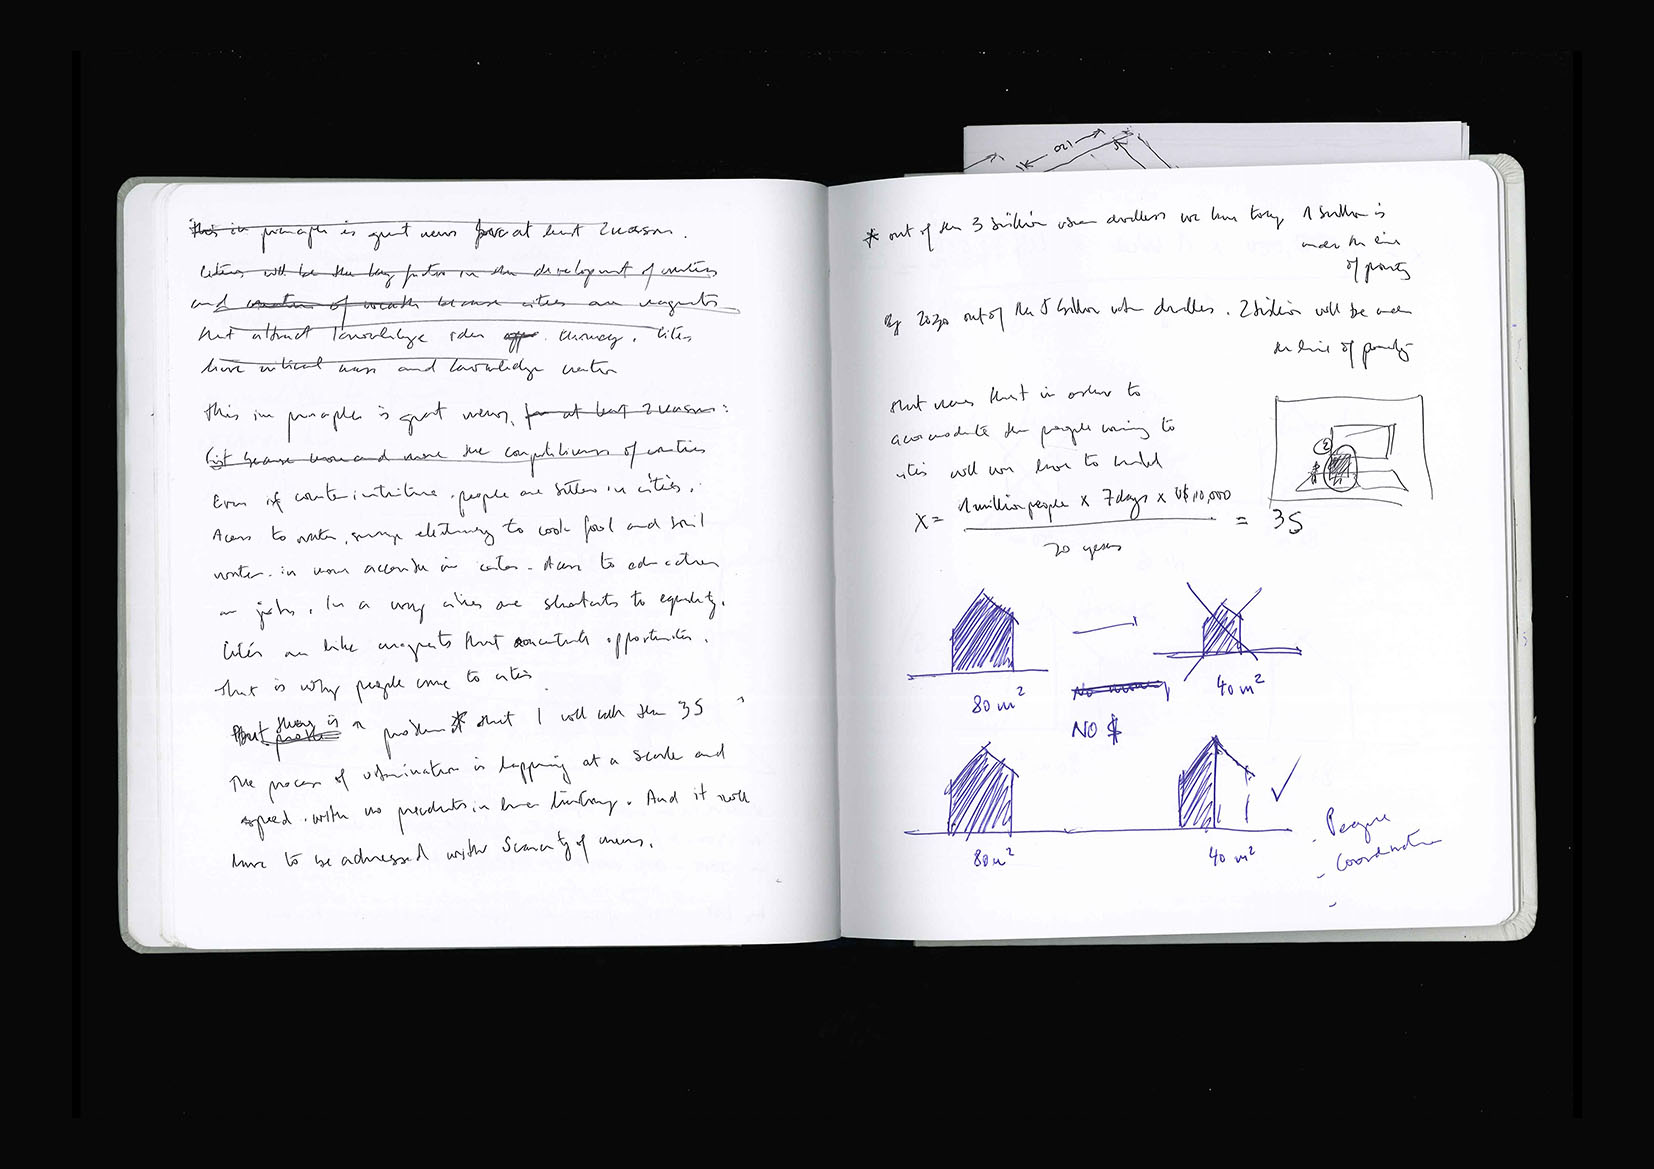 This in principle is great news for at least 2 reasons.
Cities will be the key factor in the development of countries
and creation of wealth because cities are magnets
that attract knowledge, Cities
have critical mass and knowledge creation
This in principle is great news, for at least 2 reasons:
first because more and more the competitiveness of countries
Even if counterintuitive, people are better in cities.
Access to water, sewage electricity to cook food and boil
water. is more accessible in cities. Access to education
or jobs. In a way cities are shortcuts to equality.
Cities are like magnets that concentrate opportunities.
That is why people come to cities
But there is a problem * that I will call the 3S
The process of urbanization is happening at a scale and
speed with no precedents in human history. And it will
have to be addressed with Scarcity of means.
120
* out of the 3 billion urban dwellers we have today 1 billion is
under the line
of poverty
By 2030 out of the 5 billion urban dwellers. 2 billion will be under
the line of poverty
that means that in order to
accommodate the people coming to
cities we will have to build
X = 1 million people x 7 days x U$ 10,000 = 3S
20 years
80 m² No money 40 m²
NO $
80 m² 40 m²
- People
- Coordination
-